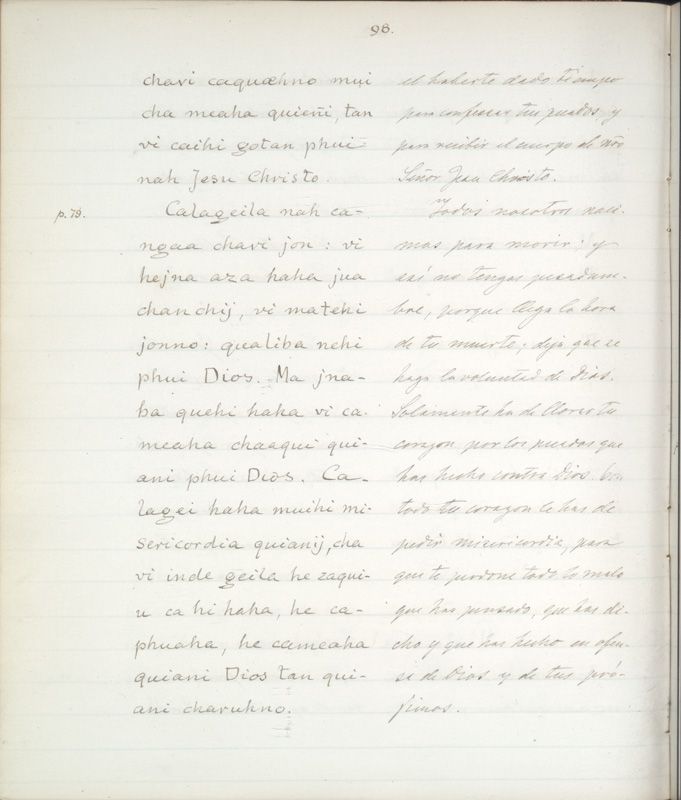 98.
chavi caquæhno mui
cha meaha quieñi, tan
vi caihi gotan phui
nah Jesu Christo.
p. 79.
Calageila nah ca-
ngaa chavi jon: vi
hejna aza haha jua
chanchij, vi matehi
jonno: qualiba nehi
phui Dios. Ma jna-
ba quehi haha vi ca-
meaha chaaqui qui-
ani phui Dios. Ca-
lagei haha muihi mi-
sericordia quianij, cha
vi inde geila he zaqui-
u ca hi haha, he ca-
phuaha, he cameaha
quiani Dios tan qui-
ani charuhno.
el haberte dado tiempo
para confesar tus pecados, y
para recibir el cuerpo de nro
Señor Jesu Christo.
Todos nosotros naci-
mos para morir: y
así no tengas pesadum-
bre, porque llega la hora
de tu muerte; deja que se
haga la voluntad de Dios.
Solamente ha de llorar tu
corazon por los pecados que
has hecho contra Dios. Con
todo tu corazon le has de
pedir misericordia, para
que te perdone todo lo malo
que has pensado, que has di-
cho y que has hecho en ofen-
sa de Dios y de tus pró-
jimos.